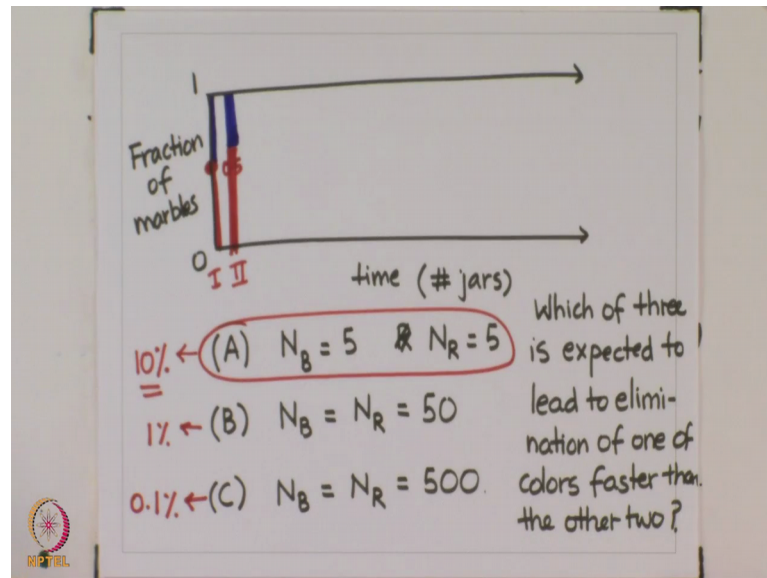 1
Fraction
of
marbles
0.5
0
I II
time (# jars)
10% ← (A) N_B = 5 & N_R = 5
1% ← (B) N_B = N_R = 50
0.1% ← (C) N_B = N_R = 500.
Which of three
is expected to
lead to elimi-
nation of one of
colors faster than
the other two?
NPTEL